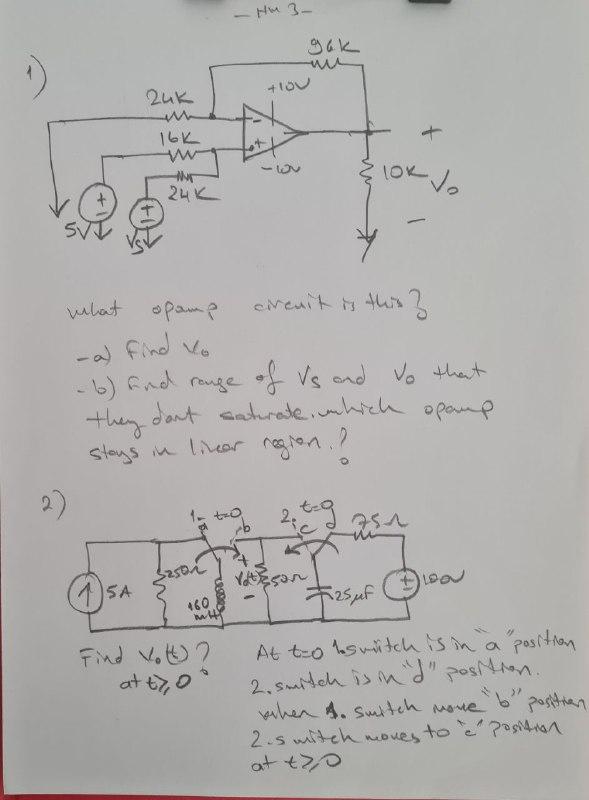 - HW 3 -
1)
96K
24K
+10V
16K
-10V
24K
10K
+
Vo
-
5V
Vs
what opamp circuit is this?
-a) Find Vo
-b) Find range of Vs and Vo that
they dont saturate. which opamp
stays in linear region.?
2)
1- t=0
a
b
2. t=0
c
d
75Ω
5A
250Ω
160
mH
+
Vo(t)
-
50Ω
25µF
100V
Find Vo(t)?
at t≥0
At t=0 1. switch is in "a" position
2. switch is in "d" position.
when 1. switch move "b" position
2. switch moves to "c" position
at t≥0